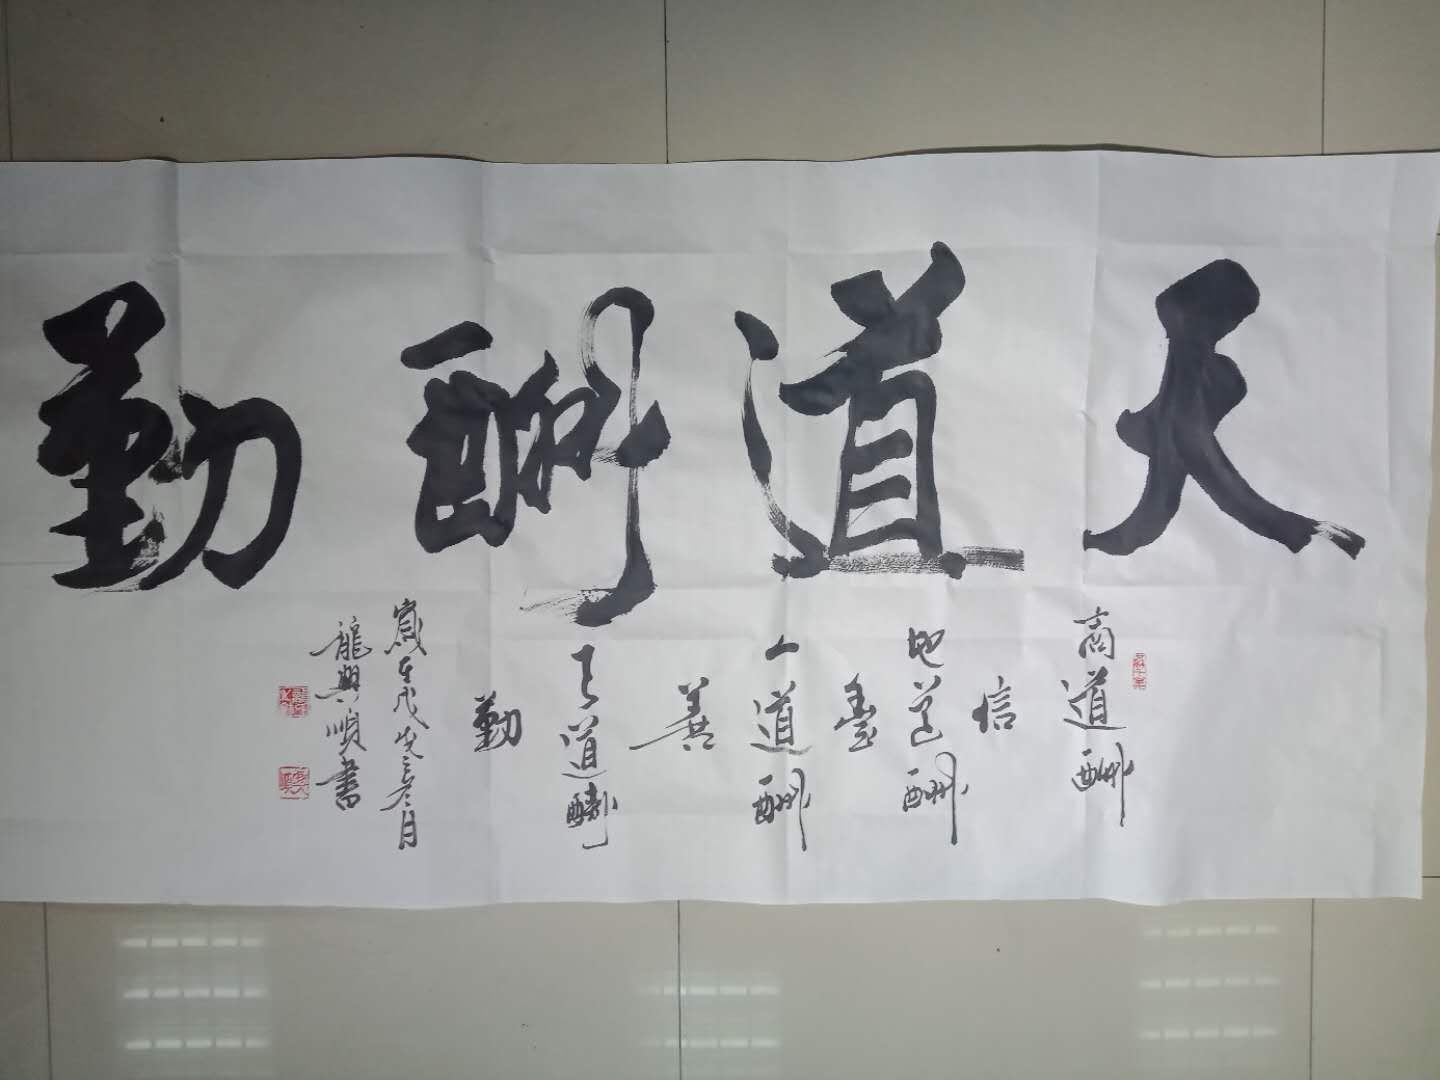 天道酬勤
商道酬
信
地道酬
善
人道酬
善
天道酬
勤
歲在戊戌之冬月
龍興順書